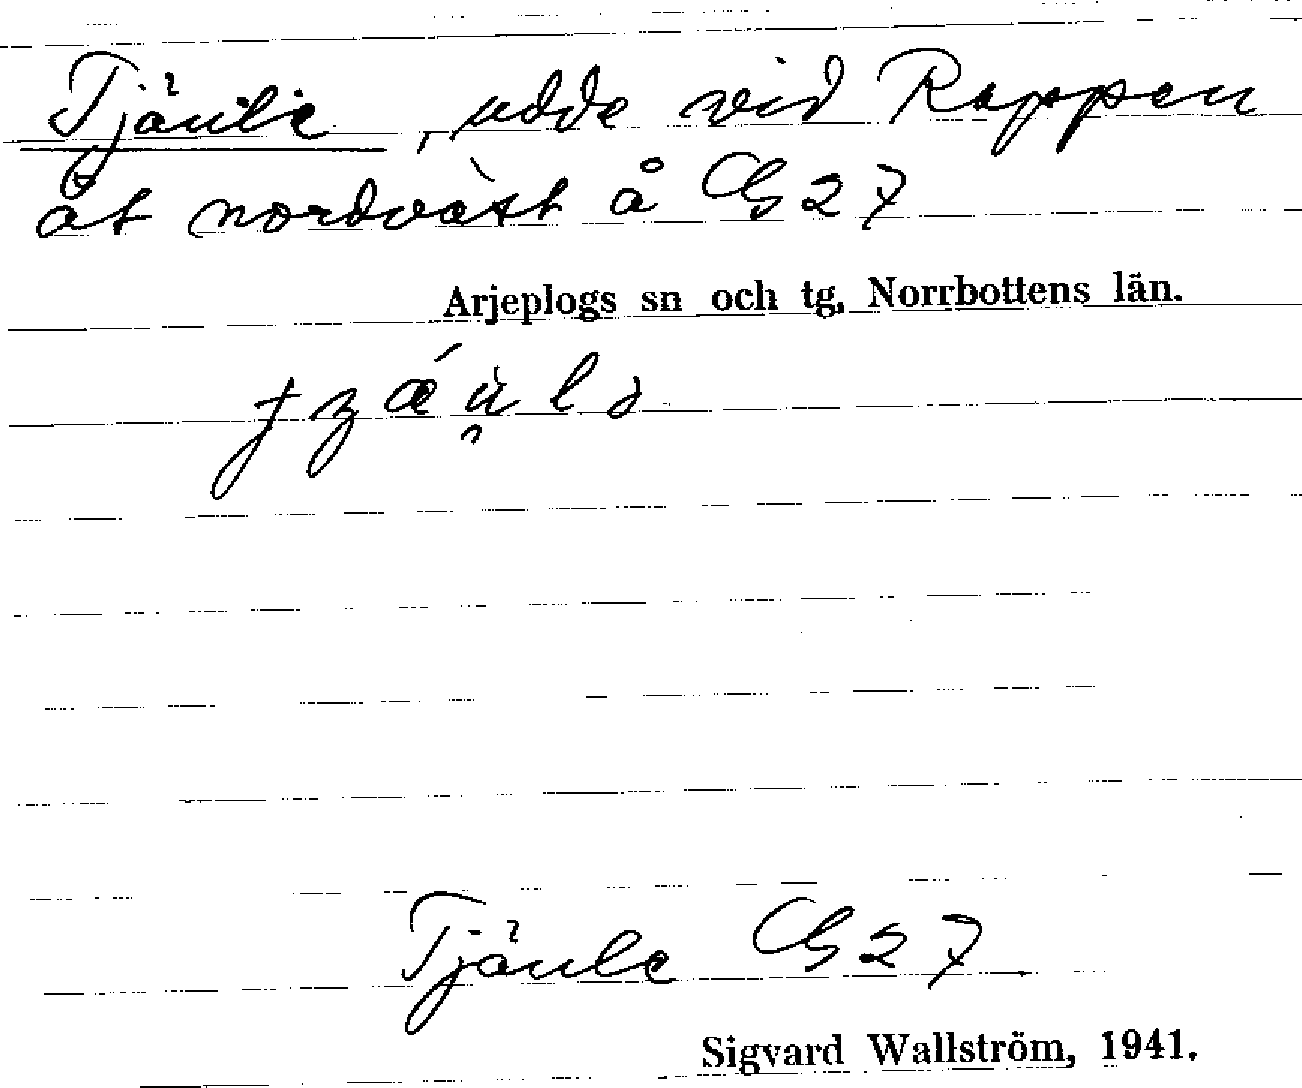 Tjäule, udde vid Rappen
åt nordväst å Gb 27
Arjeplogs sn och tg, Norrbottens län.
Tjäule Gb 27
Sigvard Wallström, 1941.